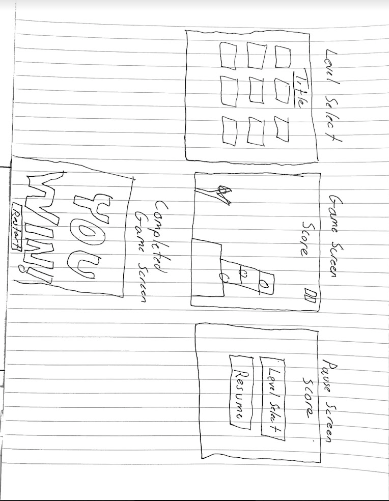 Level Select
Title
Game Screen
Score
Pause Screen
Score
Level Select
Resume
Completed
Game Screen
YOU
WIN!
Restart